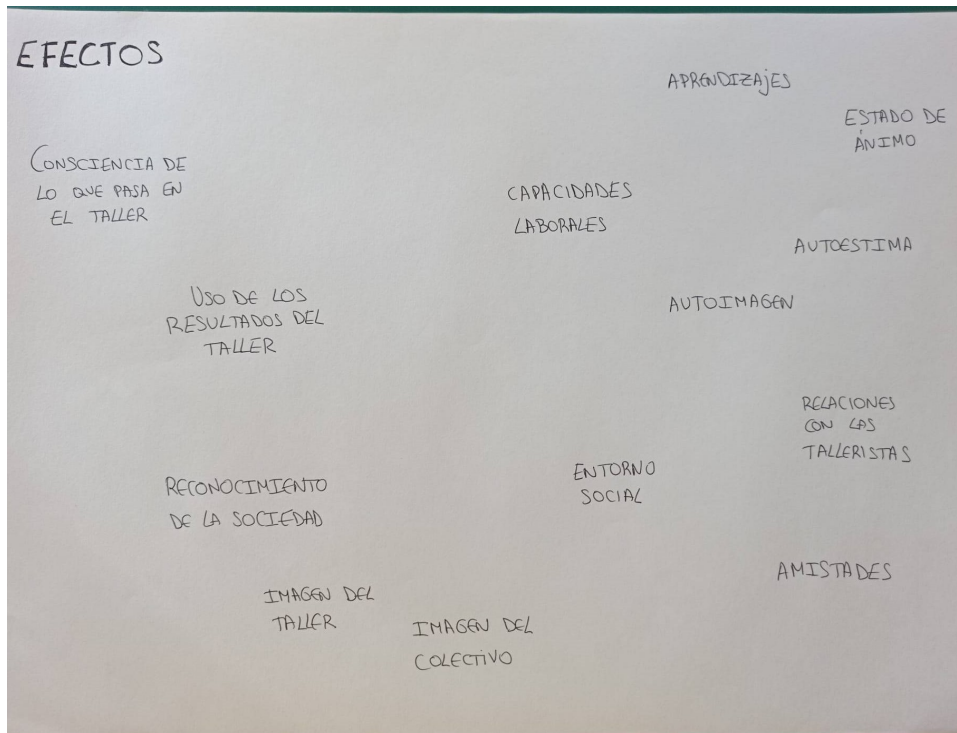 EFECTOS
APRENDIZAJES
ESTADO DE
ÁNIMO
CONSCIENCIA DE
LO QUE PASA EN
EL TALLER
CAPACIDADES
LABORALES
AUTOESTIMA
USO DE LOS
RESULTADOS DEL
TALLER
AUTOIMAGEN
RELACIONES
CON LAS
TALLERISTAS
ENTORNO
SOCIAL
RECONOCIMIENTO
DE LA SOCIEDAD
AMISTADES
IMAGEN DEL
TALLER
IMAGEN DEL
COLECTIVO